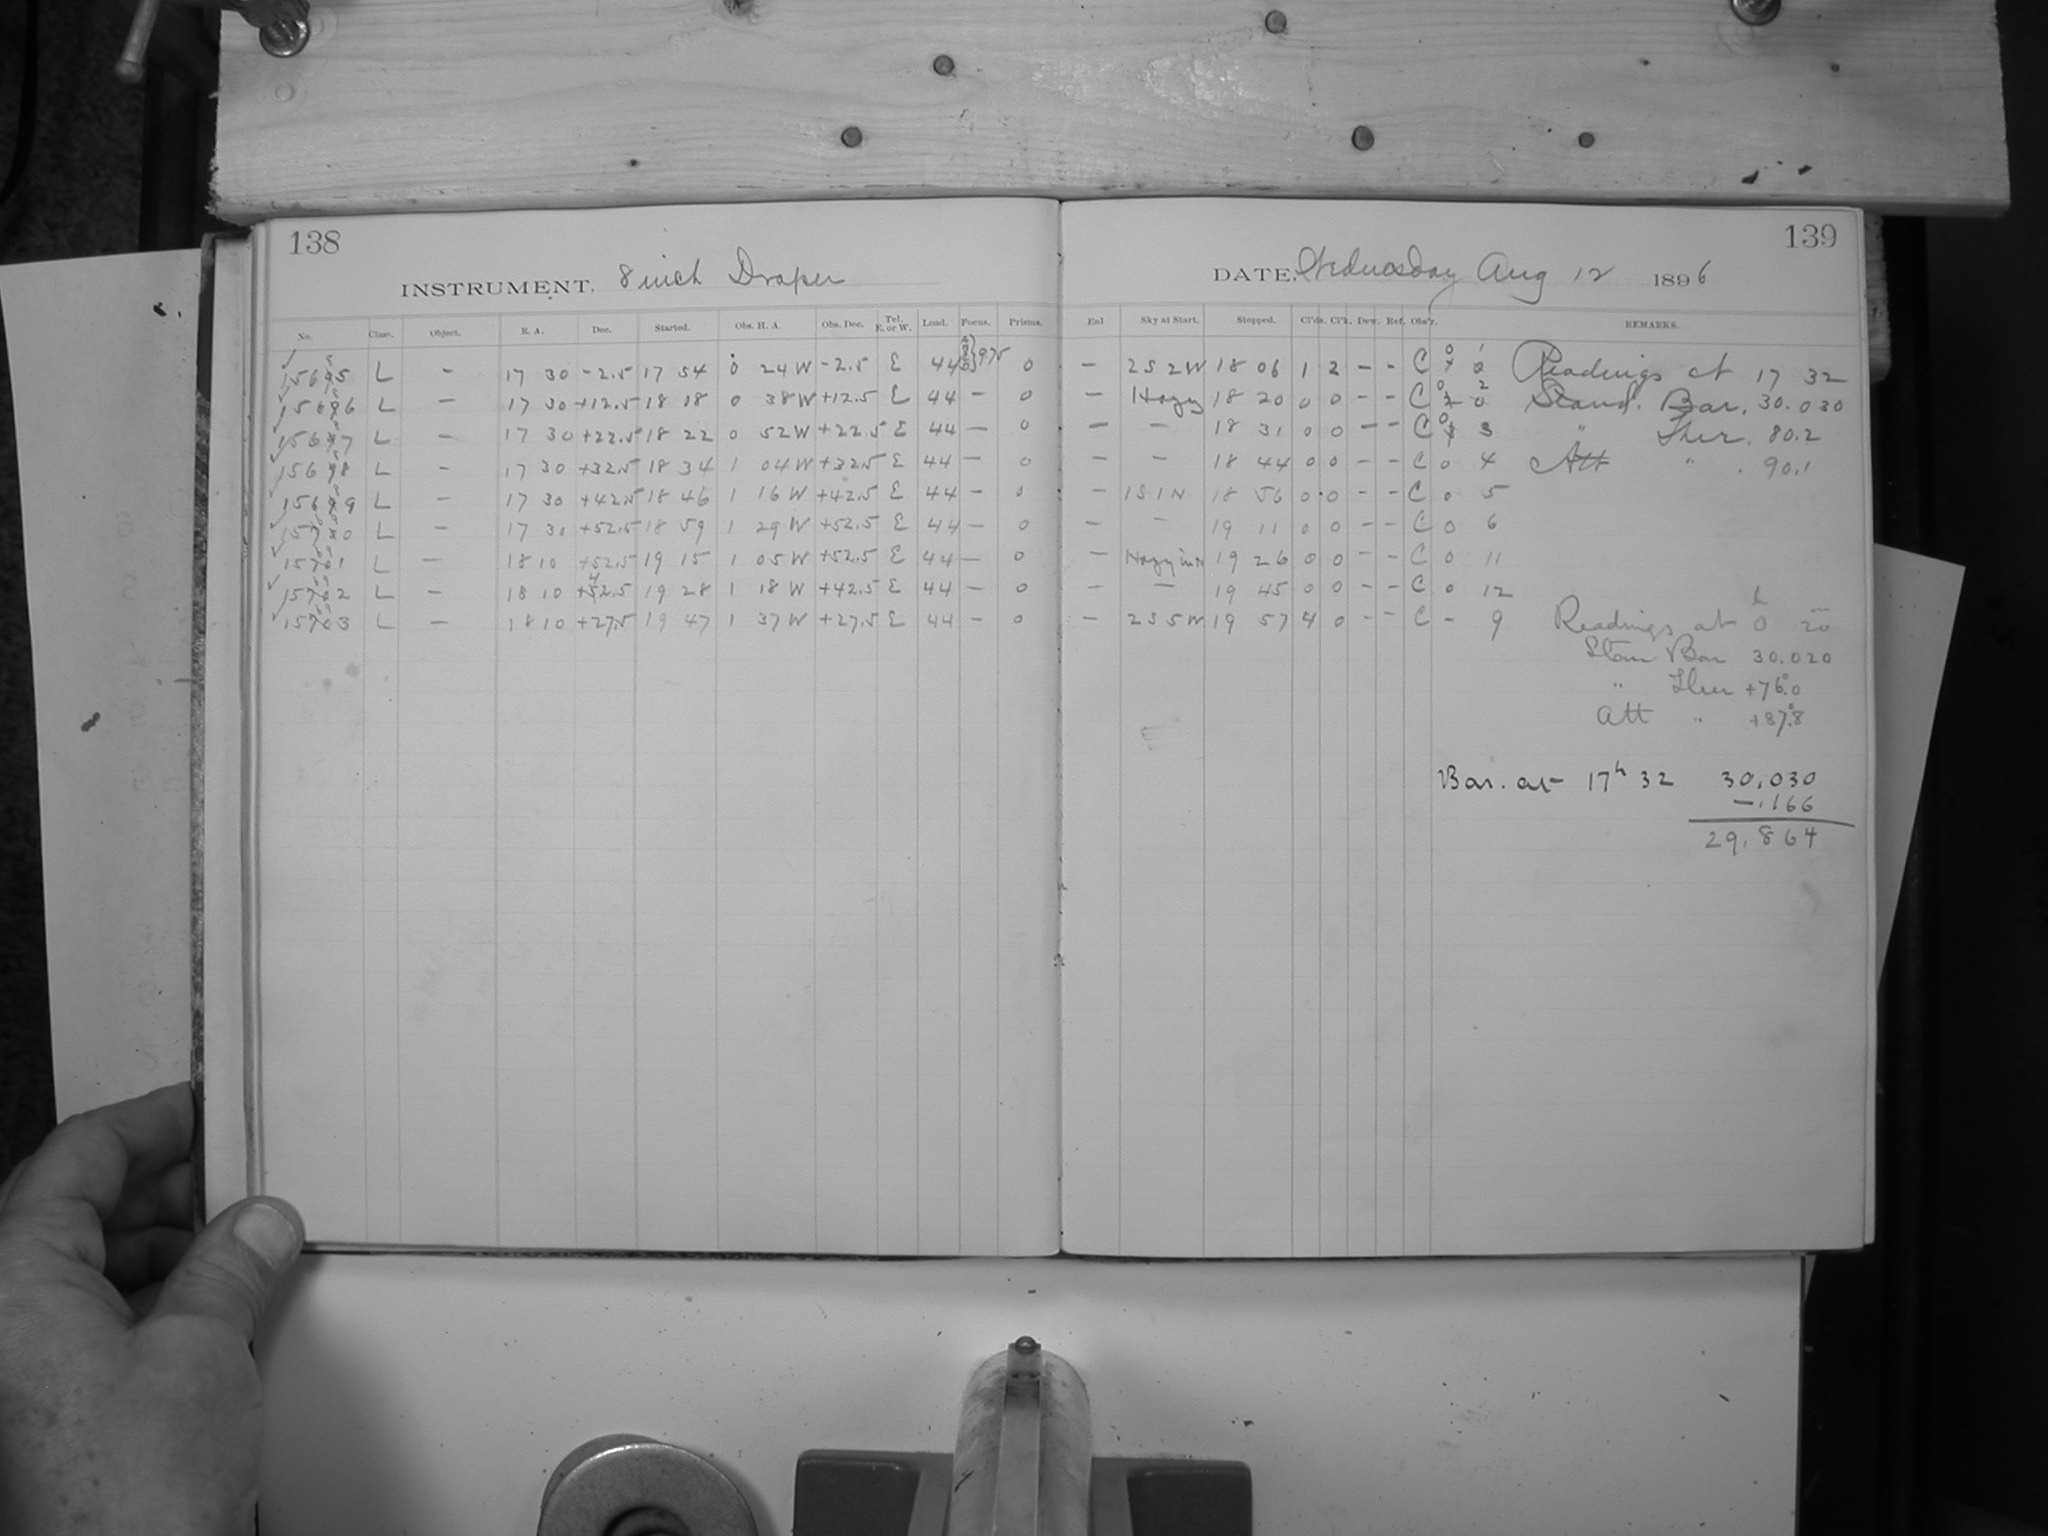 138
INSTRUMENT. 8 inch Draper
No. Class. Object. R. A. Dec. Started. Obs. H. A. Obs. Dec. Tel. E. or W. Load. Focus. Prisms.
L — 17 30 -2.5 17 54 0 24 W -2.5 E 44 9.75 0
L — 17 30 +12.5 18 08 0 38 W +12.5 E 44 — 0
L — 17 30 +22.5 18 22 0 52 W +22.5 E 44 — 0
L — 17 30 +32.5 18 34 1 04 W +32.5 E 44 — 0
L — 17 30 +42.5 18 46 1 16 W +42.5 E 44 — 0
L — 17 30 +52.5 18 59 1 29 W +52.5 E 44 — 0
L — 18 10 +52.5 19 15 1 05 W +52.5 E 44 — 0
L — 18 10 +42.5 19 28 1 18 W +42.5 E 44 — 0
L — 18 10 +27.5 19 47 1 37 W +27.5 E 44 — 0
139
DATE, Wednesday Aug 12 1896
Enl Sky at Start. Stopped. Cl'ds. Cl'k. Dew. Ref. Obs'r. REMARKS.
— 2S 2W 18 06 1 2 - - C 0 1 Readings at 17 32
— Hazy 18 20 0 0 - - C 0 2 Stand. Bar. 30.030
— — 18 31 0 0 - - C 0 3 " Ther. 80.2
— — 18 44 0 0 - - C 0 4 Att " . 90.1
— 1S 1N 18 56 0 0 - - C 0 5
— — 19 11 0 0 - - C 0 6
— Hazy in N 19 26 0 0 - - C 0 11
— — 19 45 0 0 - - C 0 12
— 2S 5W 19 57 4 0 - - C - 9 Readings at 0h 20m
Stan Bar 30.020
" Ther +76°.0
Att " +87°.8
Bar. at 17h 32 30.030
-.166
29.864